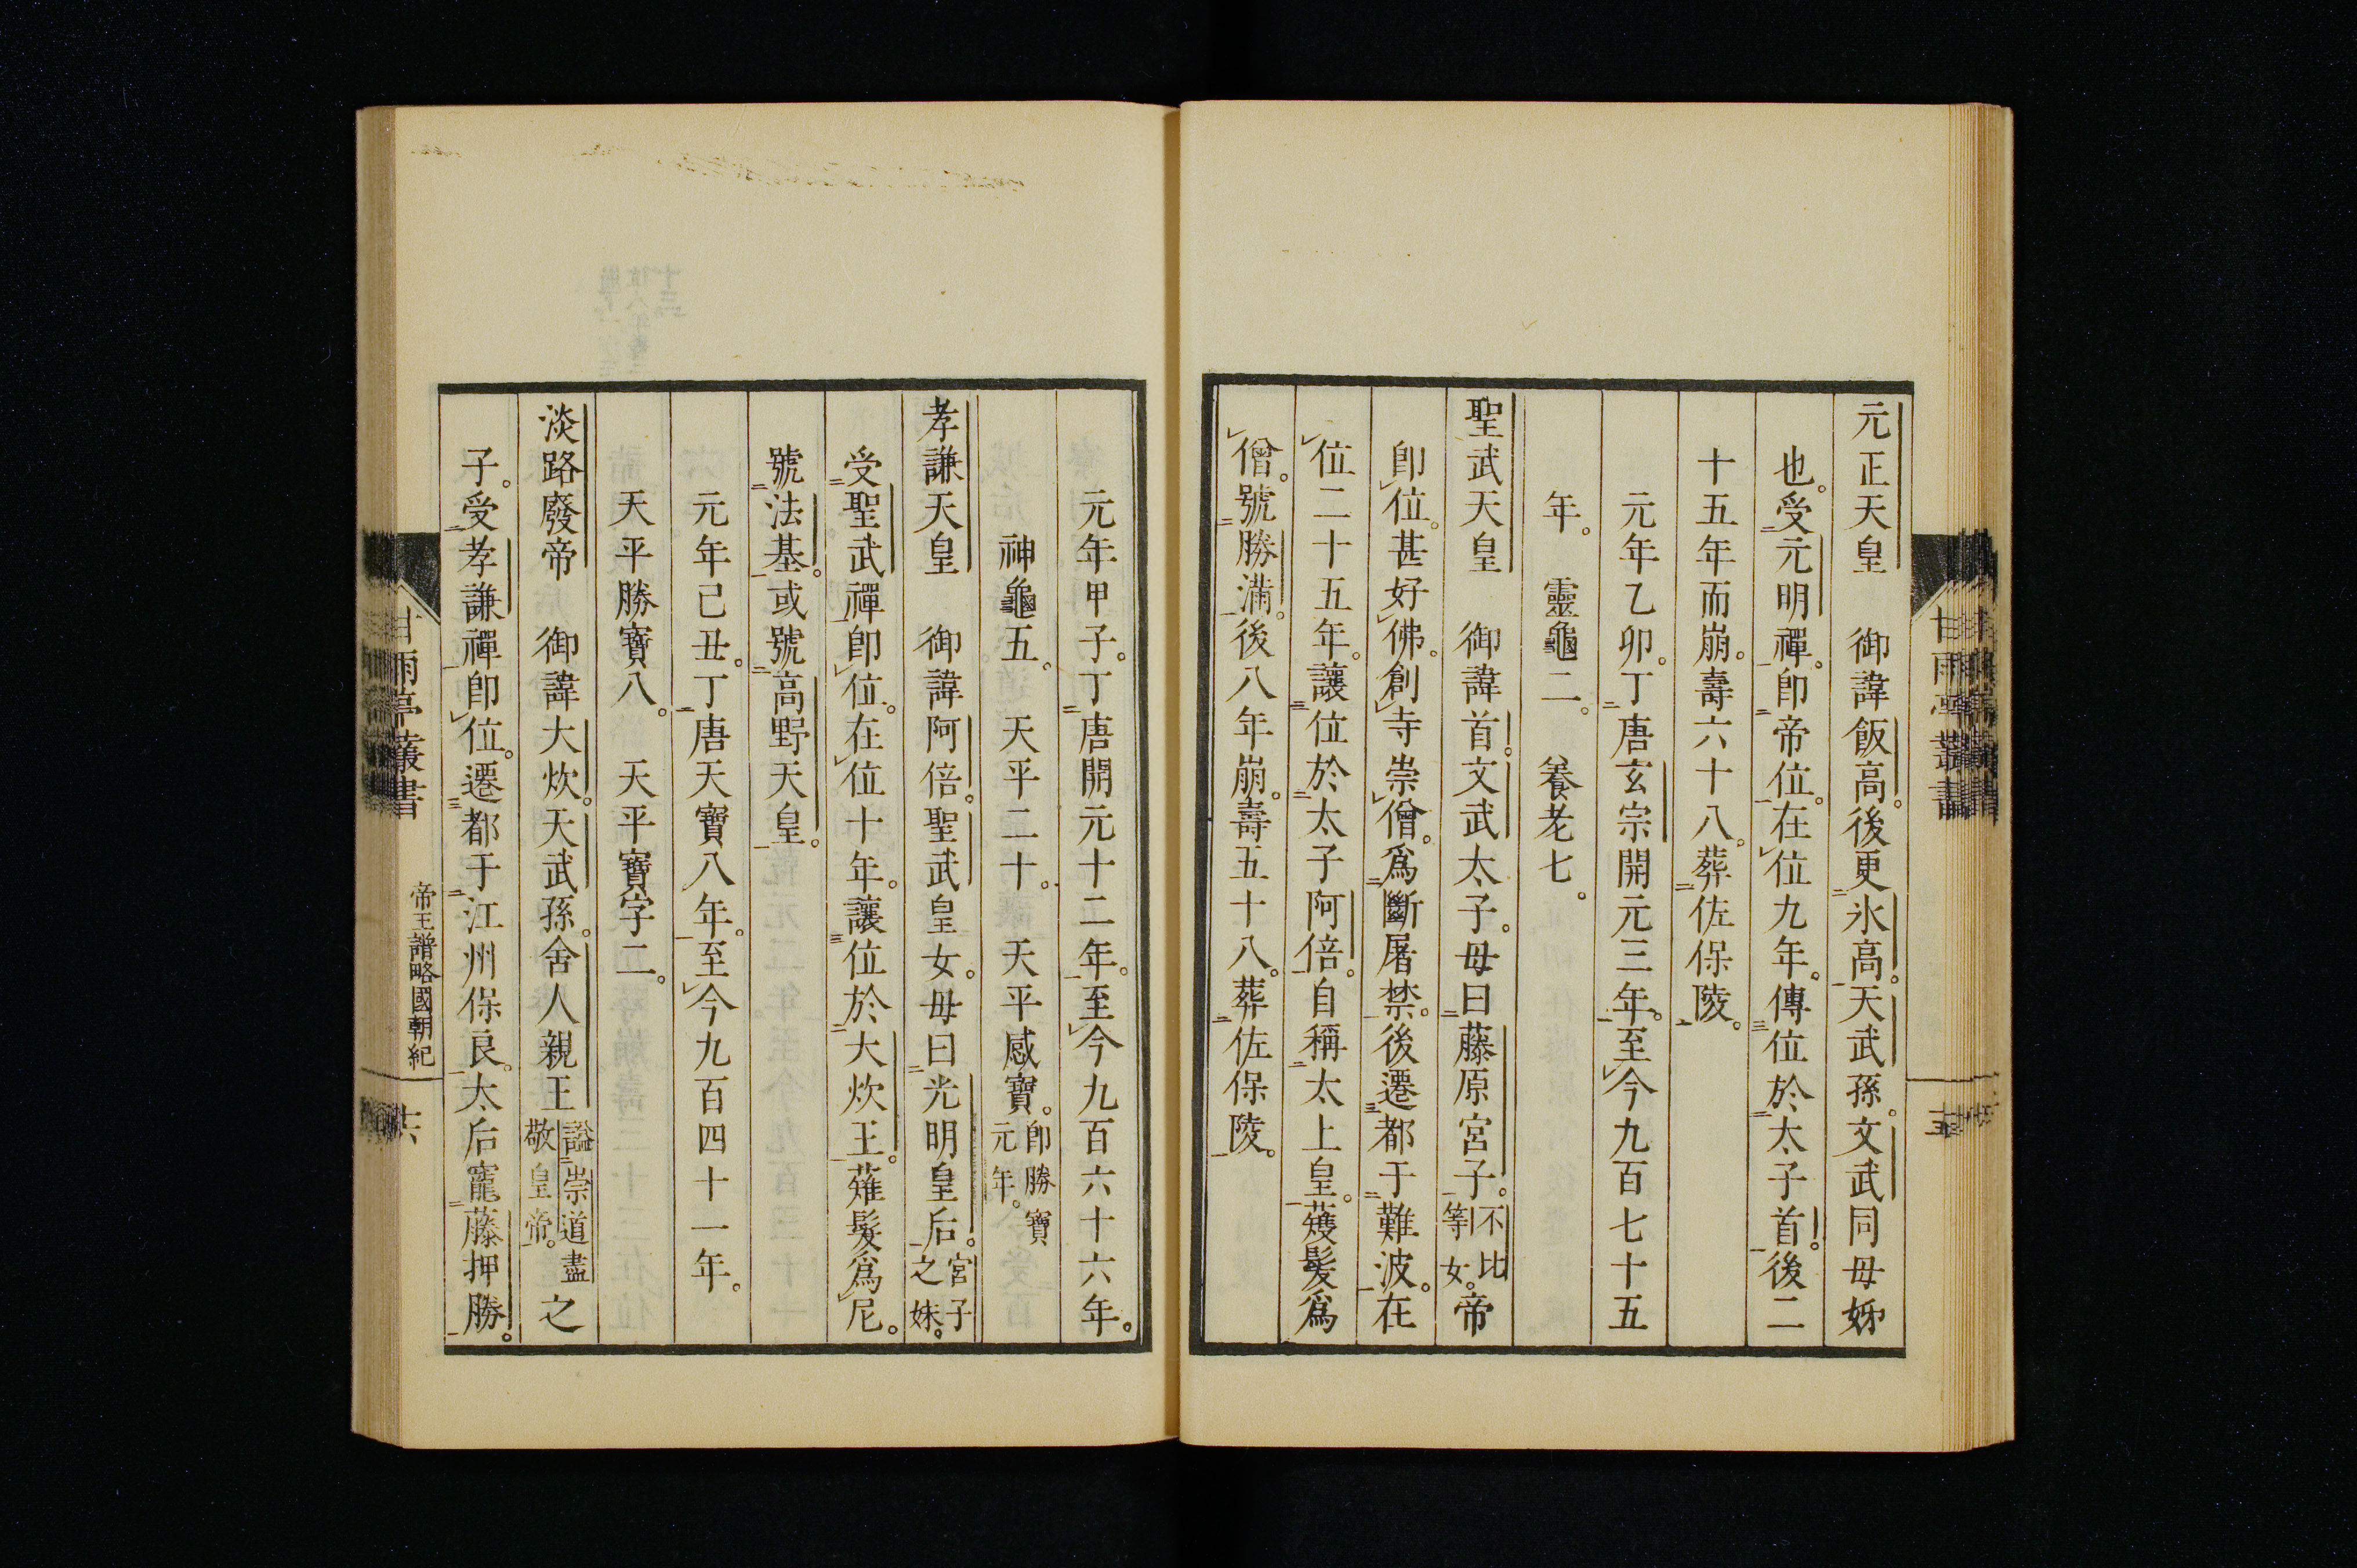 元正天皇　御諱飯高。後更氷高。天武孫。文武同母姊
也。受元明禪。卽帝位。在位九年。傳位於太子首。後二
十五年而崩。壽六十八。葬佐保陵。
元年乙卯。丁唐玄宗開元三年。至今九百七十五
年。　靈龜二。　養老七。
聖武天皇　御諱首。文武太子。母曰藤原宮子。不比等女。帝
卽位。甚好佛。創寺崇僧。爲斷屠禁。後遷都于難波。在
位二十五年。讓位於太子阿倍。自稱太上皇。薙髮爲
僧。號勝滿。後八年崩。壽五十八。葬佐保陵。
元年甲子。丁唐開元十二年。至今九百六十六年。
神龜五。　天平二十。　天平感寶。卽勝寶元年。
孝謙天皇　御諱阿倍。聖武皇女。母曰光明皇后。宮子之妹。
受聖武禪卽位。在位十年。讓位於大炊王。薙髮爲尼。
號法基。或號高野天皇。
元年己丑。丁唐天寶八年。至今九百四十一年。
天平勝寶八。　天平寶字二。
淡路廢帝　御諱大炊。天武孫。舍人親王謚崇道盡敬皇帝。之
子。受孝謙禪卽位。遷都于江州保良。太后寵藤押勝。
甘雨亭叢書　帝王譜略國朝紀　十六